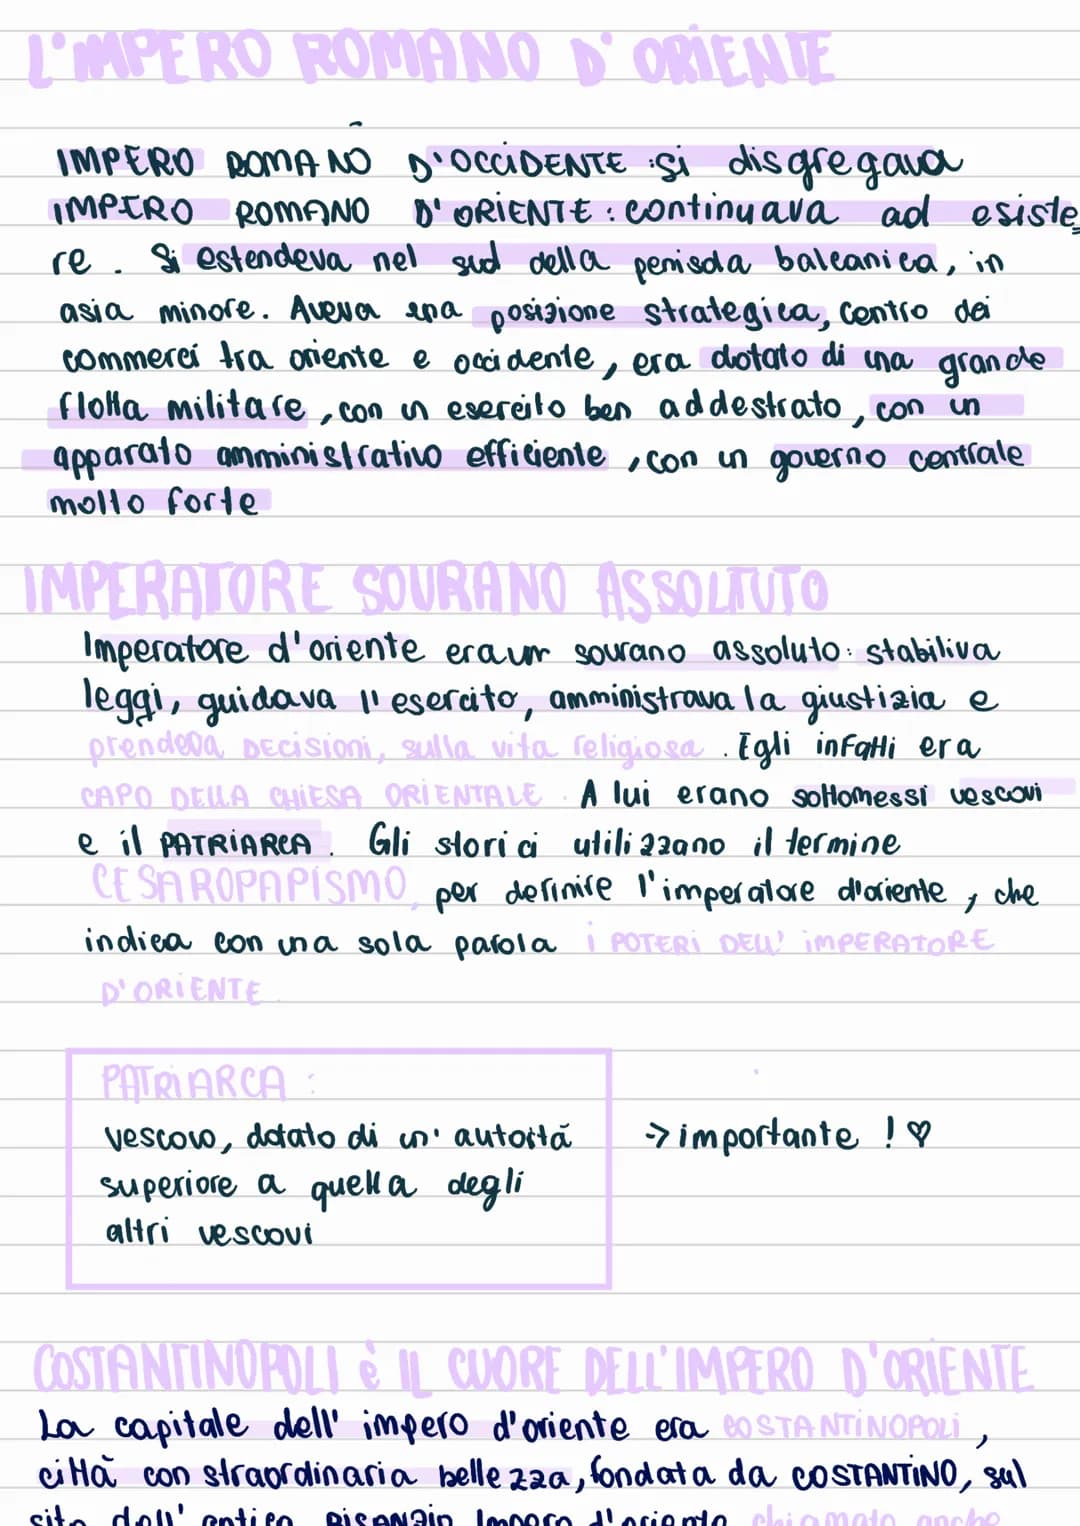 L'IMPERO ROMANO D'ORIENTE
IMPERO ROMANO D'OCCIDENTE :si disgregava
IMPERO ROMANO D'ORIENTE: continuava ad esiste
re. Si estendeva nel sud della penisola balcanica, in
asia minore. Aveva una posizione strategica, centro dei
commerci tra oriente e occidente, era dotato di una grande
flotta militare, con un esercito ben addestrato, con un
apparato amministrativo efficiente, con un governo centrale
molto forte
IMPERATORE SOVRANO ASSOLTUTO
Imperatore d'oriente era un sovrano assoluto: stabiliva
leggi, guidava l'esercito, amministrava la giustizia e
prendeva DECISIONI, sulla vita religiosa. Egli infatti era
CAPO DELLA CHIESA ORIENTALE. A lui erano sottomessi vescovi
e il PATRIARCA. Gli storici utilizzano il termine
CESAROPAPISMO, per definire l'imperatore d'oriente, che
indica con una sola parola i POTERI DELL' IMPERATORE
D'ORIENTE.
PATRIARCA:
vescovo, dotato di un' autorità
superiore a quella degli
altri vescovi
-> importante ! ♡
COSTANTINOPOLI è IL CUORE DELL'IMPERO D'ORIENTE
La capitale dell' impero d'oriente era COSTANTINOPOLI,
città con straordinaria bellezza, fondata da COSTANTINO, sul
sito dell' antica BISANZIO Impero d'oriente chiamato anche